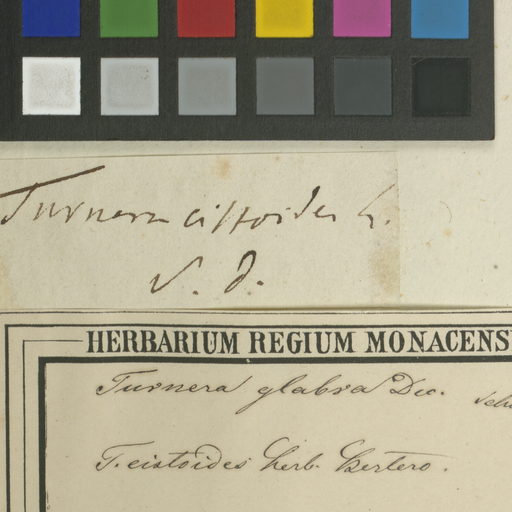 Turnera cistoides L.
S. D.
HERBARIUM REGIUM MONACENS
Turnera glabra Dec.
T. cistoides herb. Bertero.